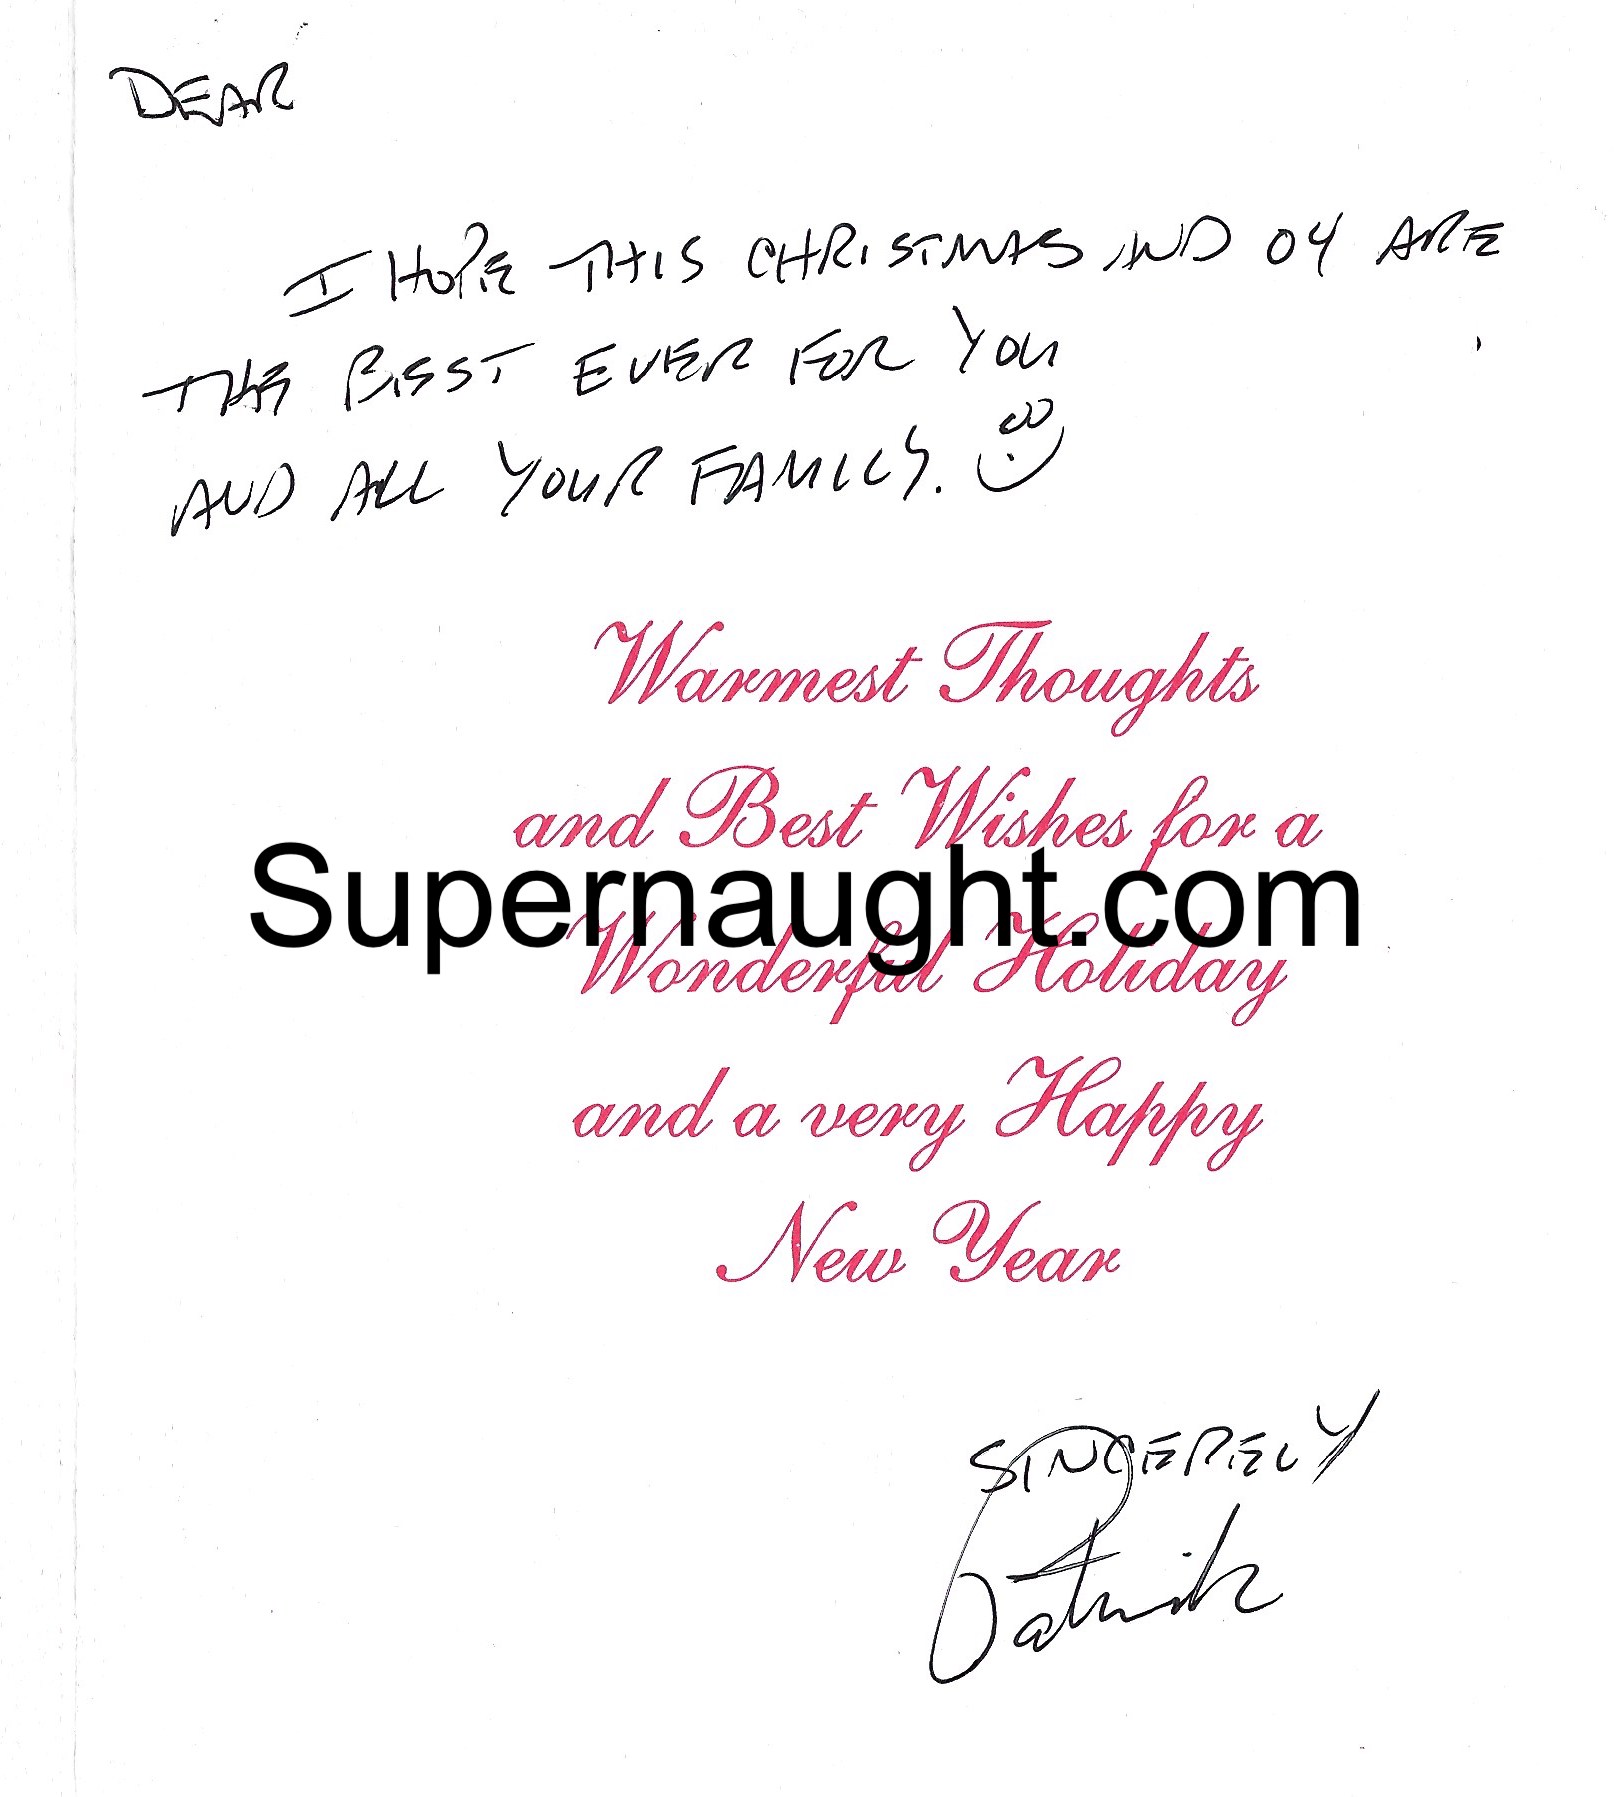 DEAR
I HOPE THIS CHRISTMAS AND 04 ARE
THE BEST EVER FOR YOU
AND ALL YOUR FAMILY.
Warmest Thoughts
and Best Wishes for a
Supernaught.com
Wonderful Holiday
and a very Happy
New Year
SINCERELY
Patrick